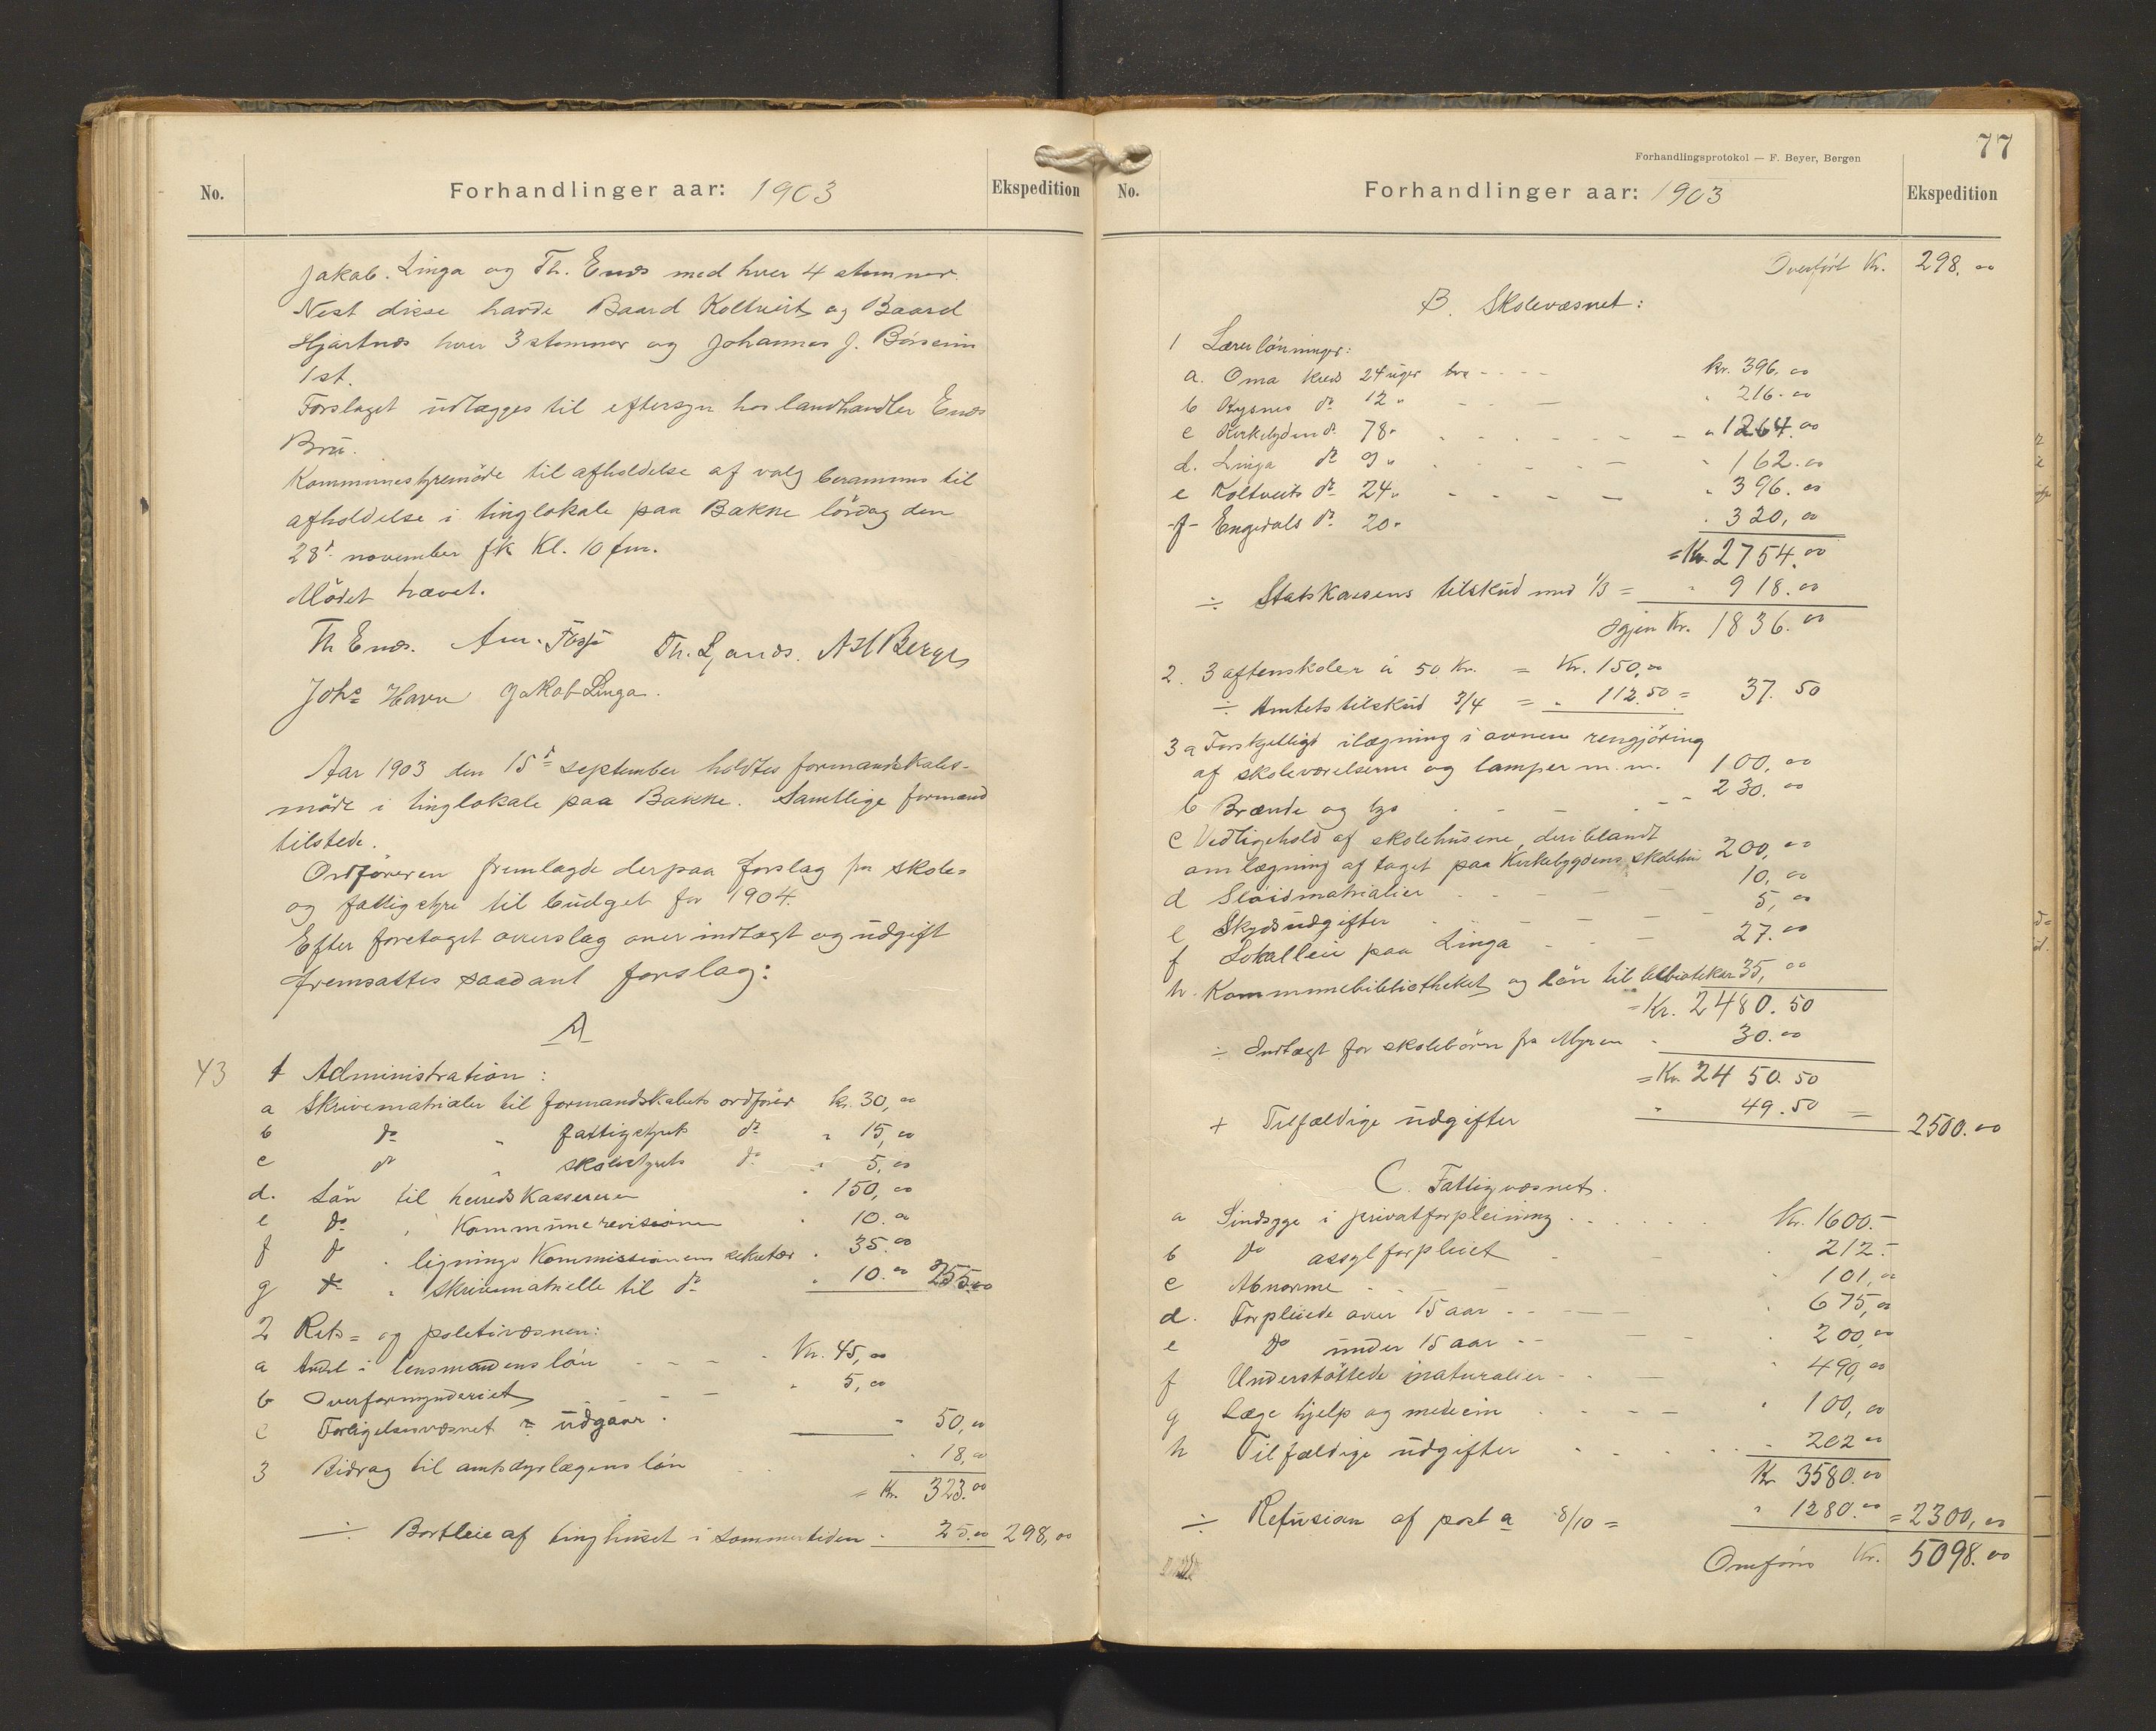 No.
Forhandlinger aar: 1903
Ekspedition
Jakob. Linga og Th. Enæs med hver 4 stemmer.
Nest disse havde Baard Koltveit og Baard
Hjartnæs hver 3 stemmer og Johannes J. Børsem
1 st.
Forslaget udlægges til eftersyn hos landhandler Enæs
Bru.
Kommunestyremöde til afholdelse af valg berammes til
afholdelse i tinglokale paa Bakke lördag den
28d. november fk Kl. 10 fm.
Mödet hævet.
Th Enæs. Th. Ljonæs. A H Berge
Johs Havn Jakob Linga.
Aar 1903 den 15de september holdtes formandskabs-
möde i tinglokale paa Bakke. Samtlige formænd
tilstede.
Ordføreren fremlagde derpaa forslag fra skole=
og fattigstyre til budget for 1904.
Efter foretaget overslag over indtægt og udgift
fremsattes saadant forslag:
A
43 1 Administration:
a Skrivematrialer til formandskabets ordförer kr. 30,00
b do " fattigstyrets do " 15,00
c do " skolestyrets do " 5,00
d. Lön til herredskassereren " 150,00
e do " Kommunerevisionen " 10.00
f do " lignings Kommissionens sekretær " 35.00
g do " skrivematrielle til do " 10.00 255.00
2 Rets= og politivæsnen:
a Andel i lensmandens lön Kr. 45,00
b Overformynderiet " 5,00
c Forligelsesvæsnet udgaar. " 50,00
3 Bidrag til amtsdyrlægens lön " 18,00
= Kr. 323.00
÷ Bortleie af tinghuset i sommertiden " 25.00 298,00
77
Forhandlingsprotokol — F. Beyer, Bergen
No.
Forhandlinger aar: 1903
Ekspedition
Overfört Kr. 298.00
B. Skolevæsnet:
1 Lærerlönninger:
a. Oma kreds 24 uger kr. 396.00
b Kysnes do 12 " " 216.00
c Kirkebygdens do 78 " " 1264.00
d. Linga do 9 " " 162.00
e Koltveits do 24 " " 396.00
f Engedals do 20 " " 320,00
= Kr. 2754.00
÷ Statskassens tilskud med 1/3 = " 918.00
igjen Kr. 1836.00
2. 3 aftenskoler á 50 Kr. = Kr. 150,00
÷ Amtets tilskud 3/4 = " 112.50 = 37.50
3 a Forskjelligt ilægning i ovnene rengjöring
af skoleværelserne og lamper m. m. 100,00
b Brænde og lys 230.00
c Vedligehold af skolehusene, deriblandt
omlægning af taget paa Kirkebygdens skolehus 200,00
d Slöidmatrialier 10,00
e Skydsudgifter 5,00
f Lokalleie paa Linga 27.00
h. Kommunebibliotheket og lön til bibliotekar 35,00
= Kr. 2480.50
÷ Indtægt for skolebörn fra Myren " 30.00
= Kr. 2450.50
+ Tilfældige udgifter " 49.50 = 2500.00
C. Fattigvæsnet.
a Sindsyge i privatforpleining Kr. 1600.-
b do assylforpleiet " 212.-
c Abnorme " 101,00
d. Forpleiede over 15 aar " 675,00
e do under 15 aar " 200,00
f Understöttede i naturalier " 490,00
g Læge hjelp og medicin " 100,00
h Tilfældige udgifter " 202 00
Kr 3580.00
÷ Refusion af post a 8/10 = " 1280.00 = 2300,00
Omföres Kr. 5098.00